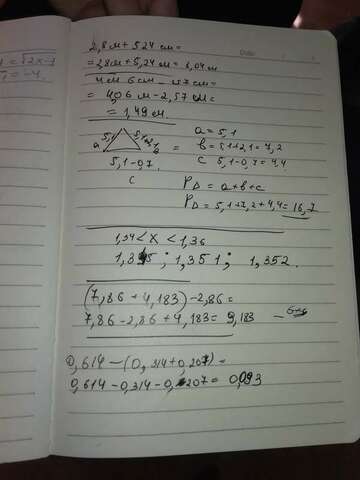 = √2x-1
= -4.
Date
2,8м + 524 см =
= 2,8м + 5,24 м = 8,04 м
4м 6см - 257 см =
= 4,06 м - 2,57 м =
= 1,49 м.
a 5,1 5,1+2,1 в =
5,1-0,7
c
a = 5,1
в = 5,1+2,1 = 7,2
c 5,1-0,7 = 4,4
P∆ = a+в+c
P∆ = 5,1+7,2+4,4 = 16,7
1,34 < x < 1,36
1,345 ; 1,351 ; 1,352.
(7,86 + 4,183) - 2,86 =
7,86 - 2,86 + 4,183 = 9,183
0,614 - (0,314 + 0,207) =
0,614 - 0,314 - 0,207 = 0,093